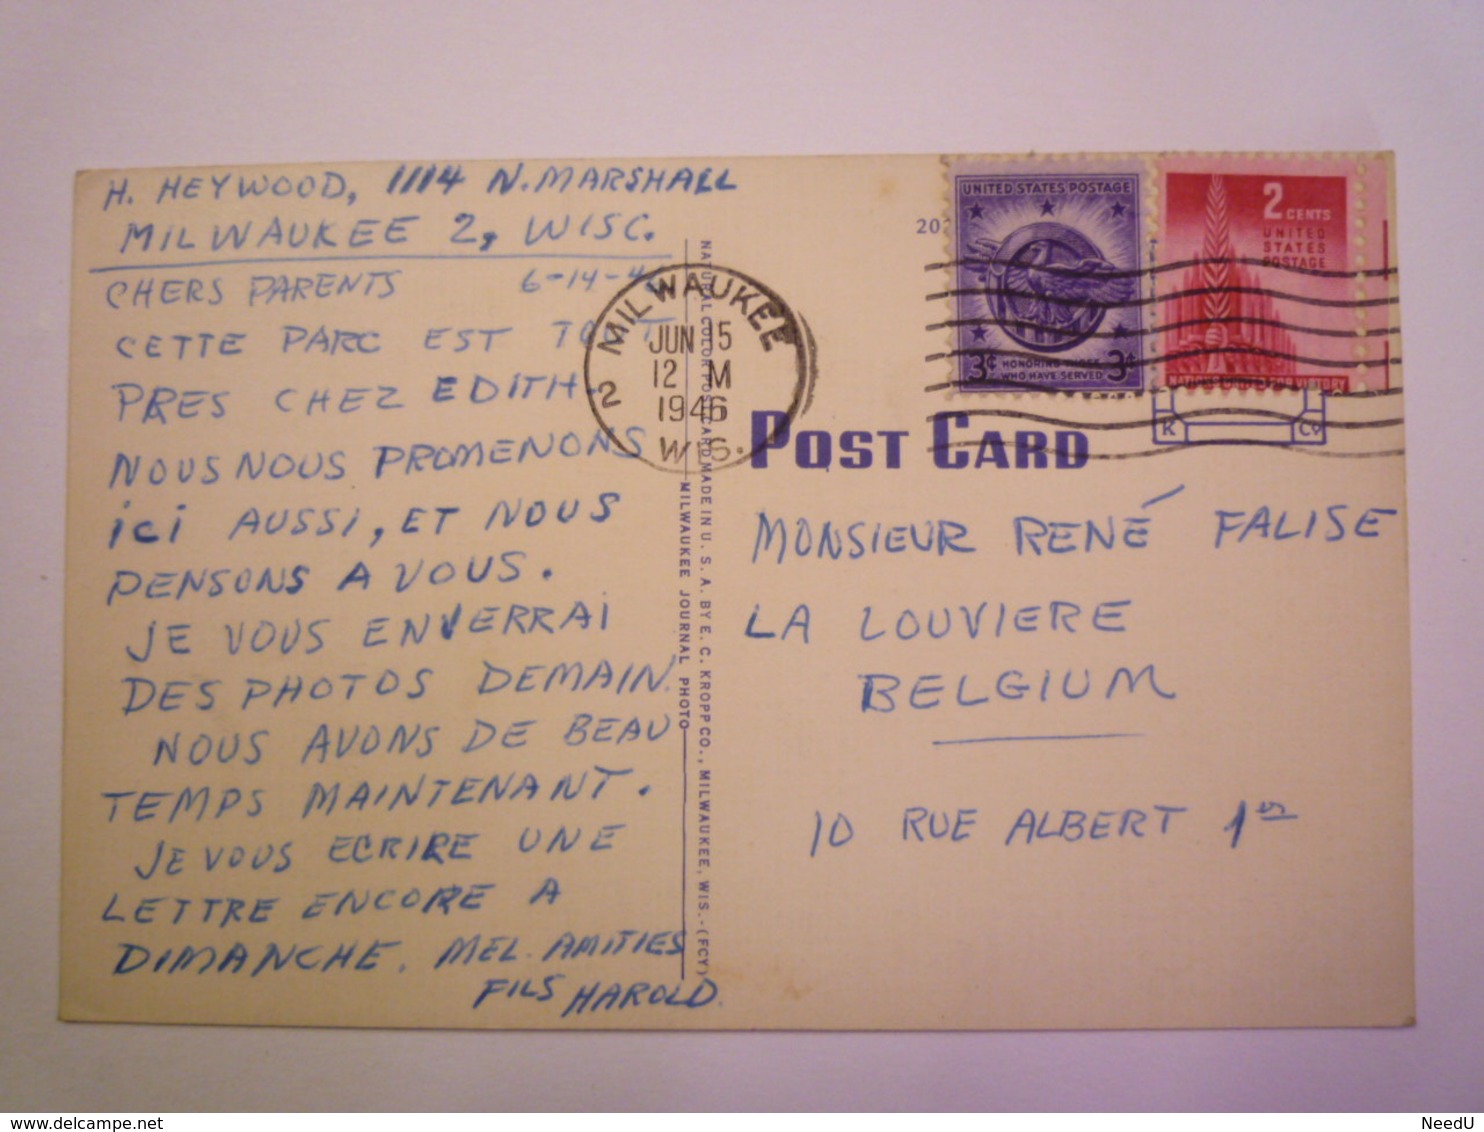 H. HEYWOOD, 1114 N. MARSHALL
MILWAUKEE 2, WISC.
CHERS PARENTS 6-14-4
CETTE PARC EST TOUT
PRES CHEZ EDITH.
NOUS NOUS PROMENONS
ICI AUSSI, ET NOUS
PENSONS A VOUS.
JE VOUS ENVERRAI
DES PHOTOS DEMAIN.
NOUS AVONS DE BEAU
TEMPS MAINTENANT.
JE VOUS ECRIRE UNE
LETTRE ENCORE A
DIMANCHE. MEL. AMITIES
FILS HAROLD.
MILWAUKEE 2
JUN 15
12 M
1946
WIS.
NATURAL COLOR POST CARD MADE IN U. S. A. BY E. C. KROPP CO., MILWAUKEE, WIS.-(FCY)
MILWAUKEE JOURNAL PHOTO
202
UNITED STATES POSTAGE
3¢ HONORING THOSE 3¢
WHO HAVE SERVED
2 CENTS
UNITED
STATES
POSTAGE
K Co
POST CARD
MONSIEUR RENÉ FALISE
LA LOUVIERE
BELGIUM
10 RUE ALBERT 1er
http://www.delcampe.net
NeedU